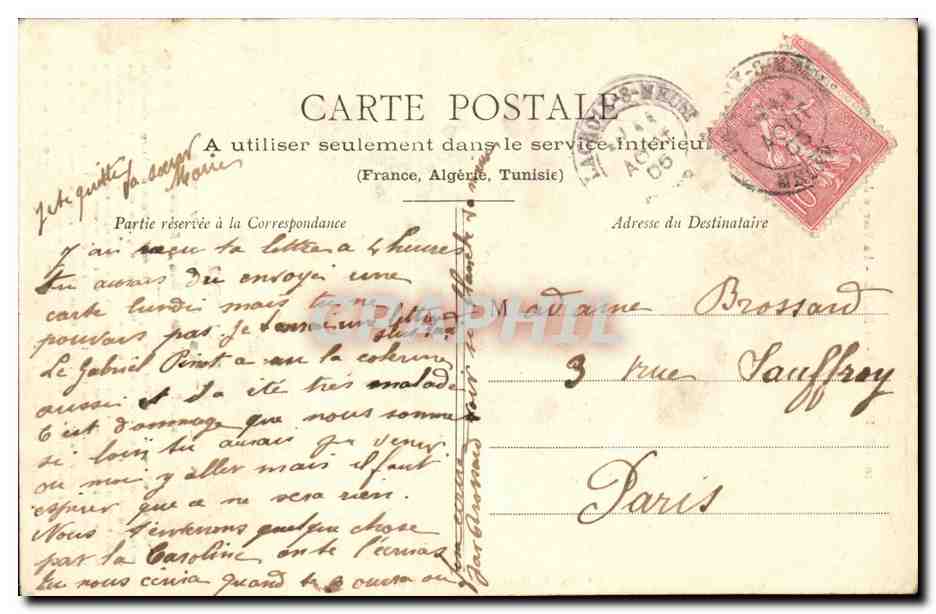 CARTE POSTALE
A utiliser seulement dans le service intérieur
(France, Algérie, Tunisie)
Partie réservée à la Correspondance
Adresse du Destinataire
J'ai reçu ta lettre a 4 heures
tu aurais du envoyé une
carte lundi mais tu ne
pouvais pas je lettre
Le Gabriel Pinot a eu la colerine
aussi et il a été très malade
C'est dommage que nous somme
si loin tu aurais pu venir
ou moi y aller mais il faut
espérer que ce ne sera rien.
Nous t'enverons quelque chose
par la Caroline on te l'écrira
tu nous écrira quand tu ou
par Brossard voir se blanche
je te quitte ta soeur
Marie
Madame Brossard
3 rue Jauffroy
Paris
LAGNOY-S-MEUN
AOUT
05
10
CPAPHIL